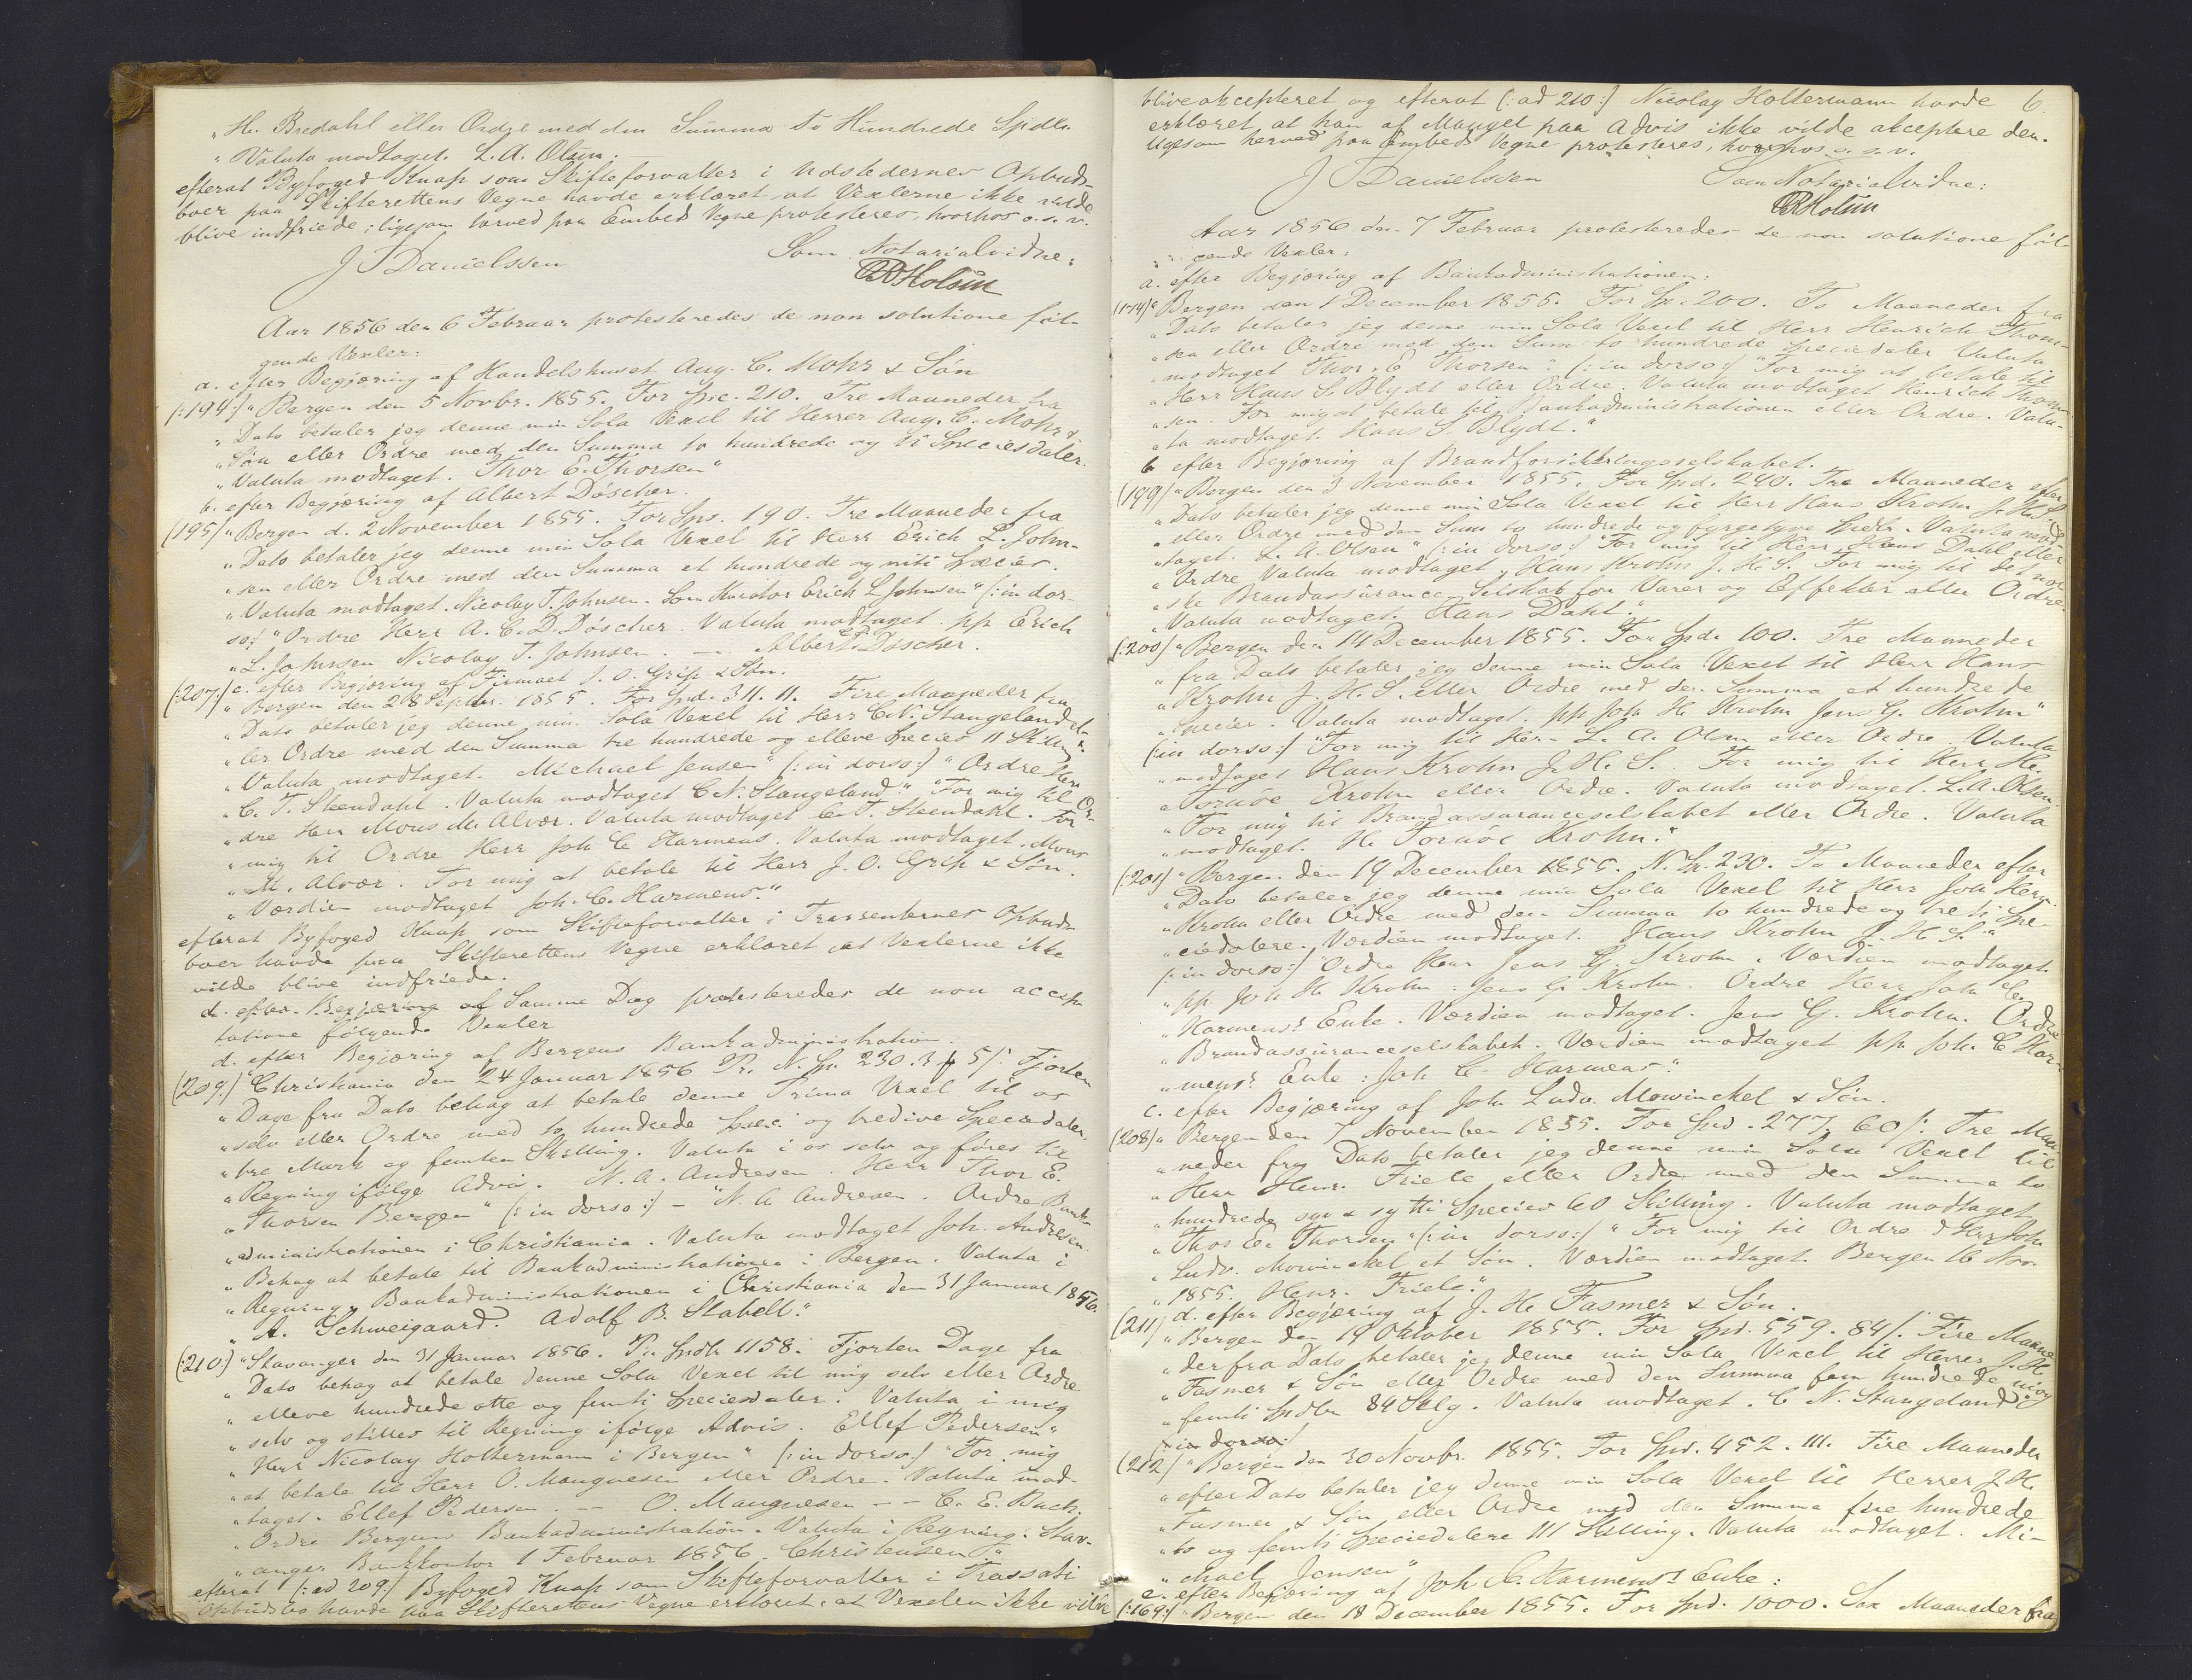 „H. Bredahl eller Ordre med den Summa to Hundrede Spdlr.
„Valuta modtaget. L. A. Olsen.
efterat Byfoged Knap som Skifteforvalter i Udstedernes Opbuds-
boer paa Skifterettens Vegne havde erklæret at Vexlerne ikke vilde
blive indfriede; ligesom herved paa Embeds Vegne protesteres, hvorhos o. s. v.
J J Danielssen
Som Notarialvidne:
Aar 1856 den 6 Februar protesteredes de non solutione føl-
gende Vexler:
a. efter Begjæring af Handelshuset Aug. C. Mohr & Søn
(:194:) „Bergen den 5 Novbr. 1855. For Spec. 210. Tre Maaneder fra
„Dato betaler jeg denne min Sola Vexel til Herrer Aug. C. Mohr &
„Søn eller Ordre med den Summa to hundrede og ti Speciesdaler.
„Valuta modtaget. Thor E. Thorsen“
b. efter Begjæring af Albert Döscher.
(195) „Bergen d. 2 November 1855. For Sps. 190. Tre Maaneder fra
„Dato betaler jeg denne min Sola Vexel til Herr Erich L. John-
„sen eller Ordre med den Summa et hundrede og niti Species.
„Valuta modtaget. Nicolay T. Johnsen. Som Kurator Erich L Johnsen“ (: in dor-
so:) “Ordre Herr A. C. D. Döscher. Valuta modtaget pp Erich
„L. Johnsen Nicolay T. Johnsen. — Albert Döscher.
c. efter Begjæring af Firmaet J. O. Grip & Søn.
(:207:) „Bergen den 28 Septbr. 1855. For Spd. 311. 11. Fire Maaneder fra
„Dato betaler jeg denne min Sola Vexel til Herr C. N. Stangeland el-
„ler Ordre med den Summa tre hundrede og elleve Species 11 Skilling.
„Valuta modtaget. Michael Jensen“ (: in dorso:) “Ordre Herr
„C. T. Steendahl. Valuta modtaget C. N. Stangeland.“ “For mig til Or-
„dre Herr Mons M. Alvær. Valuta modtaget C. T. Steendahl. For
„mig til Ordre Herr Joh C Harmens. Valuta modtaget. Mons
„M. Alvær. For mig at betale til Herr J. O. Grip & Søn.
„Værdien modtaget Joh. C. Harmens.“
efterat Byfoged Knap som Skifteforvalter i Trassenternes Opbuds-
boer havde paa Skifterettens Vegne erklæret at Vexlerne ikke
vilde blive indfriede.
d. efter Begjæring af Samme Dag protesteredes de non accep-
tatione følgende Vexler
d. efter Begjæring af Bergens Bankadministration.
(209:) “Christiania den 24 Januar 1856 Pr. N. Sp. 230. 3 ₰ 5/: Fjorten
„Dage fra Dato behag at betale denne Prima Vexel til os
„selv eller Ordre med to hundrede Speci og tredive Speciedaler
„tre Mark og femten Skilling. Valuta i os selv og føres til
„Regning ifølge Advis. N. A. Andresen. Herr Thor E.
„Thorsen Bergen“ (: in dorso:) – “N. A Andresen. Ordre Bank-
„administrationen i Christiania. Valuta modtaget Joh. Andresen.
„Behag at betale til Bankadministrationen i Bergen. Valuta i
„Regning. Bankadministrationen i Christiania den 31 Januar 1856.
„A. Schweigaard. Adolf B. Stabell.“
(:210:) “Stavanger den 31 Januar 1856. Pr. Spdlr 1158. Fjorten Dage fra
„Dato behag at betale denne Sola Vexel til mig selv eller Ordre
„elleve hundrede otte og femti Speciesdaler. Valuta i mig
„selv og stilles til Regning ifølge Advis. Ellef Pedersen“
„Herr Nicolay Holtermann i Bergen“ (: in dorso:) “For mig
„at betale til Herr O. Maugnesen eller Ordre. Valuta mod-
„taget. Ellef Pedersen. — O. Maugnesen — C. E. Buch.
„Ordre Bergens Bankadministration. Valuta i Regning. Stav-
„anger Bankkontor 1 Februar 1856. Christensen
efterat (: ad 209:) Byfoged Knap som Skifteforvalter i Trassati
Opbudsbo havde paa Skifterettens Vegne erklæret at Vexelen ikke vilde
blive akcepteret og efterat (: ad 210:) Nicolay Holtermann havde 6
erklæret at han af Mangel paa Advis ikke vilde akceptere den.
ligesom herved paa Embeds Vegne protesteres, hvorhos o. s. v.
J J Danielssen
Som Notarialvidne:
Aar 1856 den 7 Februar protesteredes de non solutione føl-
gende Vexler:
a. efter Begjæring af Bankadministrationen:
(174) “Bergen den 1 December 1855. For Sp. 200. To Maaneder fra
„Dato betaler jeg denne min Sola Vexel til Herr Henrich Thom-
„sen eller Ordre med den Sum to hundrede Speciedaler Valuta
„modtaget Thor. E Thorsen“ (: in dorso:) “For mig at betale til
„Herr Hans S. Blydt eller Ordre. Valuta modtaget Henrich Thom-
„sen. For mig at betale til Bankadministrationen eller Ordre. Valu-
„ta modtaget. Hans S Blydt.“
b efter Begjæring af Brandforsikringsselskabet.
(199) “Bergen den 3 November 1855. For Spd. 240. Tre Maaneder efter
„Dato betaler jeg denne min Sola Vexel til Herr Hans Krohn J. H. S.
„eller Ordre med den Sum to hundrede og fyrgetyve Spdlr. Valuta mod-
„taget. L. A. Olsen“ (: in dorso:) “For mig til Herr Hans Dahl eller
„Ordre Valuta modtaget. Hans Krohn J. H. S. For mig til det nor-
„ske Brandassurance Selskab for Varer og Effekter eller Ordre
„Valuta modtaget. Hans Dahl.“
(:200) “Bergen den 11 December 1855. For Spd. 100. Tre Maaneder
„fra Dato betaler jeg denne min Sola Vexel til Herr Hans
„Krohn J. H. S. eller Ordre med den Summa et hundrede
„Species. Valuta modtaget. pp Joh H. Krohn Jens G. Krohn“
(: in dorso:) “For mig til Herr L. A. Olsen eller Ordre Valuta
„modtaget Hans Krohn J. H. S. For mig til Herr H.
„Tornöe Krohn eller Ordre. Valuta modtaget. L. A. Olsen
„For mig til Brandassuranceselskabet eller Ordre. Valuta
„modtaget. H. Tornöe Krohn.“
(:201) “Bergen den 19 December 1855. N. Sp. 230. To Maaneder efter
„Dato betaler jeg denne min Sola Vexel til Herr Joh Herm.
„Krohn eller Ordre med den Summa to hundrede og tre ti Spe-
„ciedalere. Værdien modtaget. Hans Krohn J. H. S.“
(: in dorso:) “Ordre Herr Jens G. Krohn. Værdien modtaget
„pp Joh H. Krohn: Jens G Krohn. Ordre Herr Joh C.
„Harmens's Enke. Værdien modtaget. Jens G. Krohn. Ordre
„Brandassuranceselskabet. Værdien modtaget pp Joh. C Har-
„mens's Enke: Joh C. Harmens.“
c. efter Begjæring af Joh Ludv. Mowinckel & Søn.
(208) „Bergen den 7 November 1855. For Spd. 277. 60/: Tre Maa-
„neder fra Dato betaler jeg denne min Sola Vexel til
„Herr Henr. Friele eller Ordre med den Summa to
„hundrede syv & sytti Species 60 Skilling. Valuta modtaget
„Thor E. Thorsen“ (: in dorso:) “For mig til Ordre d Herr Joh
„Ludv. Mowinckel et Søn. Værdien modtaget. Bergen 16 Nov.
„1855. Henr. Friele.“
d. efter Begjæring af J. H. Fasmer & Søn.
(211) „Bergen den 19 Oktober 1855. For Spd. 559. 84/: Fire Maane-
„der fra Dato betaler jeg denne min Sola Vexel til Herrer J. H.
„Fasmer & Søn eller Ordre med den Summa fem hundrede ni og
„femti Spdlr 84 Sklg. Valuta modtaget. C N. Stangeland“
(: in dorso:)
(212) “Bergen den 30 Novbr. 1855. For Spd. 452. 111. Fire Maaneder
„efter Dato betaler jeg denne min Sola Vexel til Herrer J. H.
„Fasmer & Søn eller Ordre med den Summa fire hundrede
„to og femti Speciedalere 111 Skilling. Valuta modtaget. Mi-
„chael Jensen“
e. efter Begjæring af Joh. C. Harmens's Enke:
(:169:) “Bergen den 18 December 1855. For Spd. 1000. Sex Maaneder fra